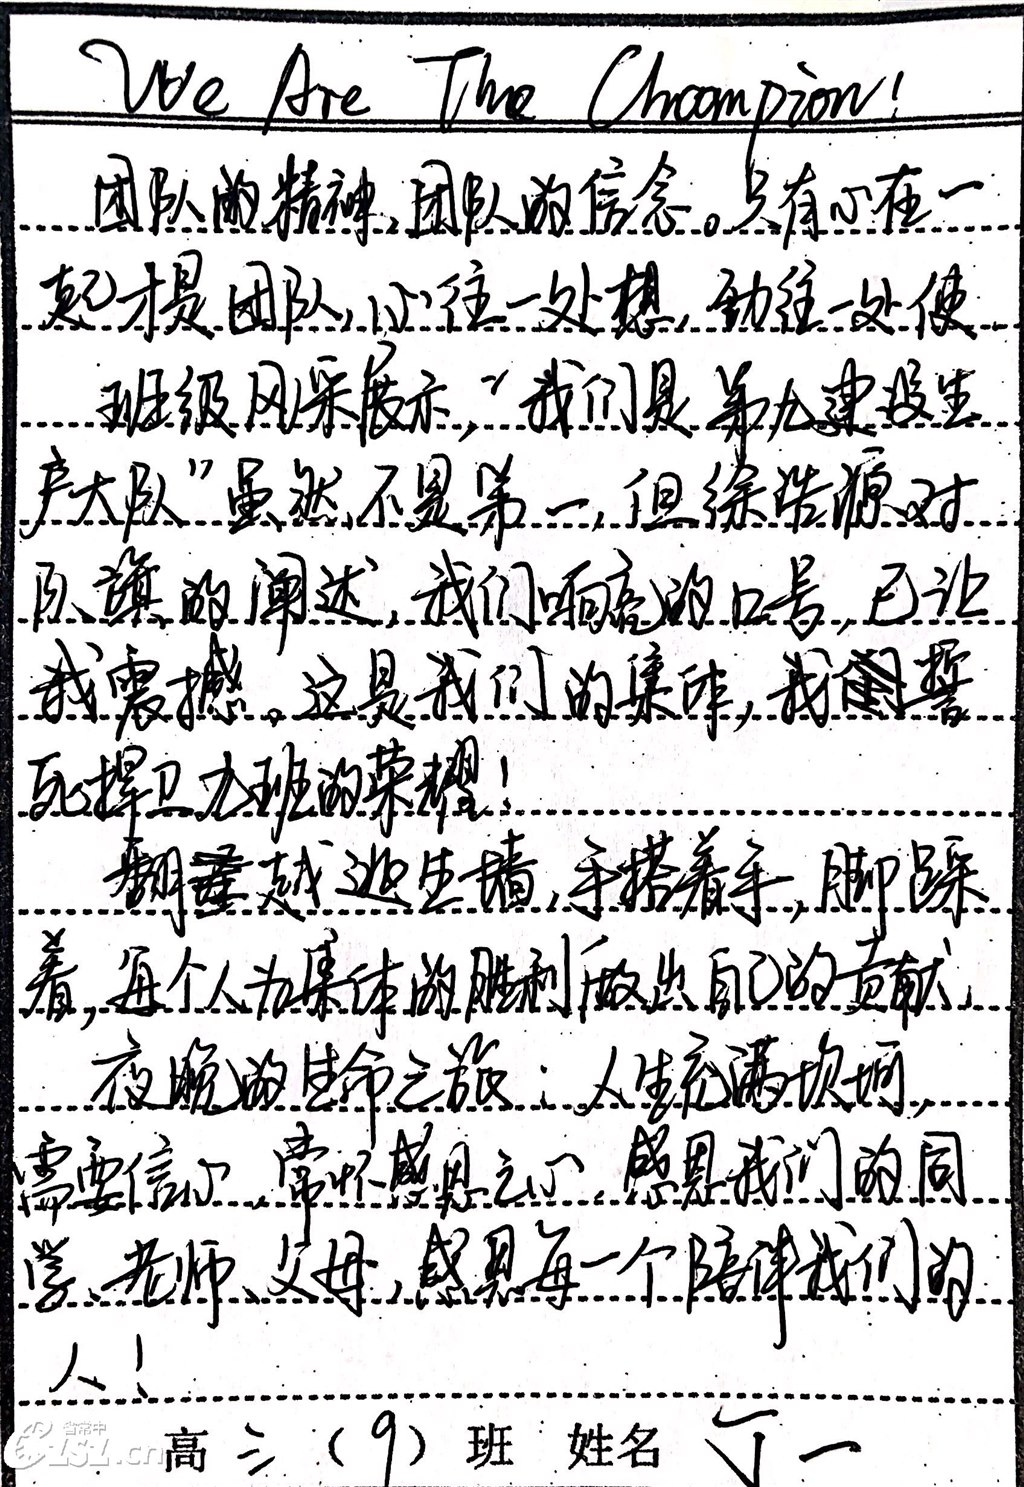 We Are The Champion!
团队的精神,团队的信念。只有心在一
起才是团队,心往一处想,劲往一处使.
班级风采展示,“我们是第九建设生
产大队”虽然不是第一,但徐浩源对
队旗的阐述,我们响亮的口号,已让
我震撼。这是我们的集体,我们誓
死捍卫九班的荣耀!
翻越逃生墙,手搭着手,脚踩
着,每个人为集体的胜利做出自己的贡献.
夜晚的生命之旅:人生充满坎坷,
需要信心,常怀感恩之心,感恩我们的同
学、老师、父母,感恩每一个陪伴我们的
人!
高三(9)班 姓名 丁一
省常中
CZSZ.cn